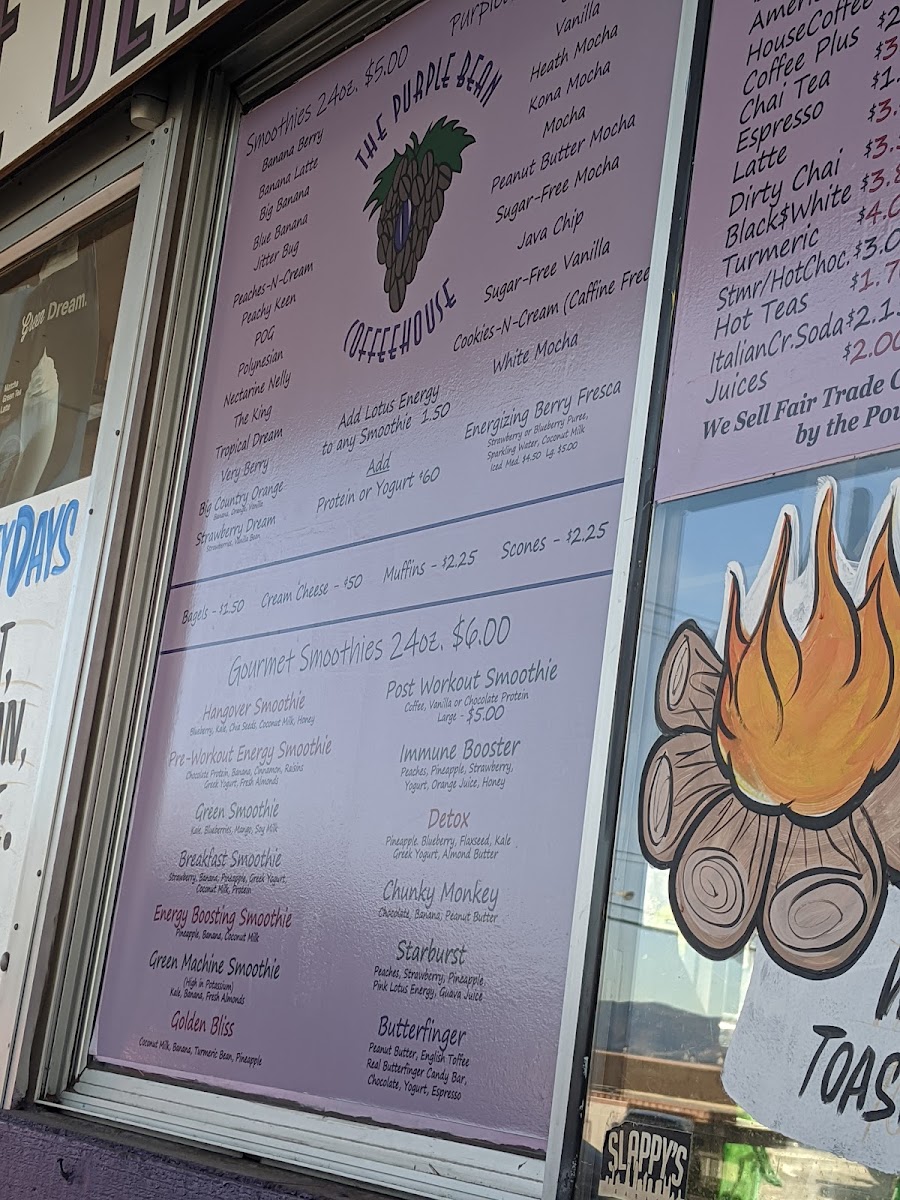 Smoothies 24oz. $5.00
Banana Berry
Banana Latte
Big Banana
Blue Banana
Jitter Bug
Peaches-N-Cream
Peachy Keen
POG
Polynesian
Nectarine Nelly
The King
Tropical Dream
Very Berry
Big Country Orange
Banana, Orange, Vanilla
Strawberry Dream
Strawberries, Vanilla Bean
THE PURPLE BEAN
COFFEEHOUSE
Add Lotus Energy
to any Smoothie 1.50
Add
Protein or Yogurt $60
Vanilla
Heath Mocha
Kona Mocha
Mocha
Peanut Butter Mocha
Sugar-Free Mocha
Java Chip
Sugar-Free Vanilla
Cookies-N-Cream (Caffine Free
White Mocha
Energizing Berry Fresca
Strawberry or Blueberry Puree,
Sparkling Water, Coconut Milk
Iced Med. $4.50 Lg. $5.00
Bagels - $1.50 Cream Cheese - $50 Muffins - $2.25 Scones - $2.25
Gourmet Smoothies 24oz. $6.00
Hangover Smoothie
Blueberry, Kale, Chia Seeds, Coconut Milk, Honey
Pre-Workout Energy Smoothie
Chocolate Protein, Banana, Cinnamon, Raisins
Greek Yogurt, Fresh Almonds
Green Smoothie
Kale, Blueberries, Mango, Soy Milk
Breakfast Smoothie
Strawberry, Banana, Pineapple, Greek Yogurt,
Coconut Milk, Protein
Energy Boosting Smoothie
Pineapple, Banana, Coconut Milk
Green Machine Smoothie
(High in Potassium)
Kale, Banana, Fresh Almonds
Golden Bliss
Coconut Milk, Banana, Turmeric Bean, Pineapple
Post Workout Smoothie
Coffee, Vanilla or Chocolate Protein
Large - $5.00
Immune Booster
Peaches, Pineapple, Strawberry,
Yogurt, Orange Juice, Honey
Detox
Pineapple, Blueberry, Flaxseed, Kale
Greek Yogurt, Almond Butter
Chunky Monkey
Chocolate, Banana, Peanut Butter
Starburst
Peaches, Strawberry, Pineapple
Pink Lotus Energy, Guava Juice
Butterfinger
Peanut Butter, English Toffee
Real Butterfinger Candy Bar,
Chocolate, Yogurt, Espresso
HouseCoffee
Coffee Plus
Chai Tea
Espresso
Latte
Dirty Chai
Black$White
Turmeric
Stmr/HotChoc.
Hot Teas
ItalianCr.Soda
Juices
We Sell Fair Trade
by the
Dream.
Matcha
Green Tea
Latte
DAYS
SLAPPY'S